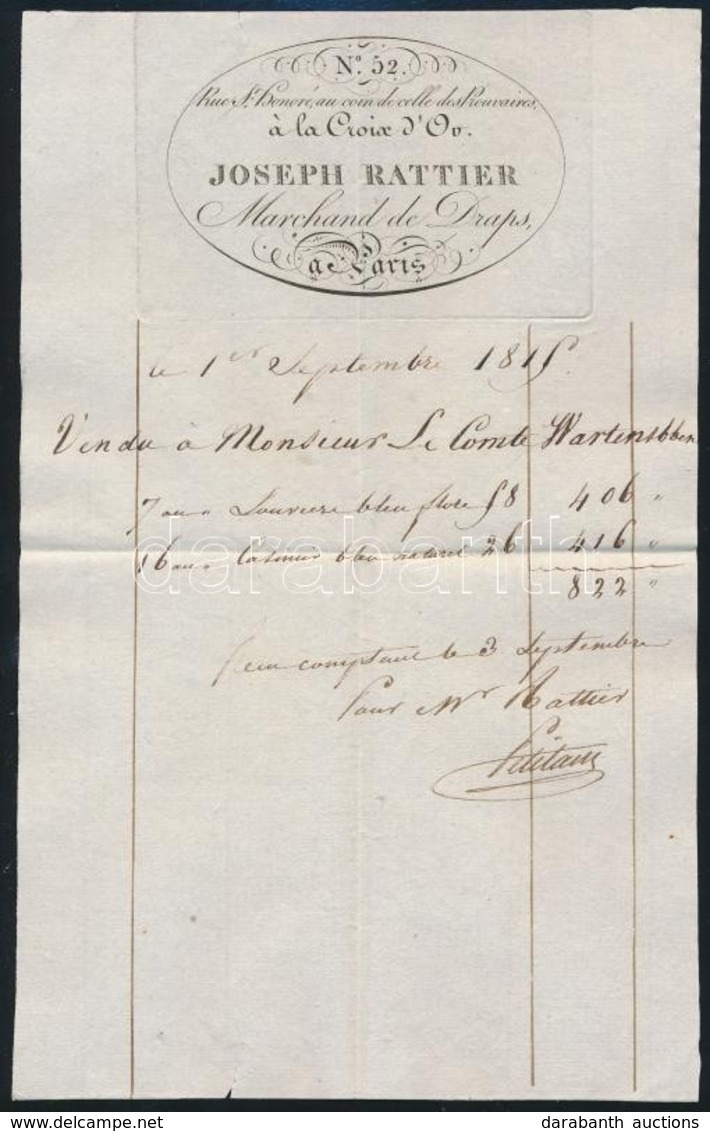 N.º 52.
Rue S.t Honoré, au coin de celle des Rouvaires,
à la Croix d'Or.
JOSEPH RATTIER
Marchand de Draps,
à Paris
le 1er Septembre 1815
Vendu à Monsieur Le Comte Wartensbben
7 au " Louviers bleu flore 58 406 "
16 au " Casimir bleu 26 416 "
822 "
comptant le 3 Septembre
Pour Mr Rattier
darabanth
www.delcampe.net
darabanth auctions